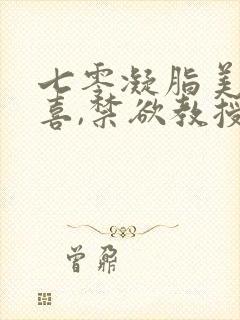 七零凝脂美
喜,禁欲教授
曾孬